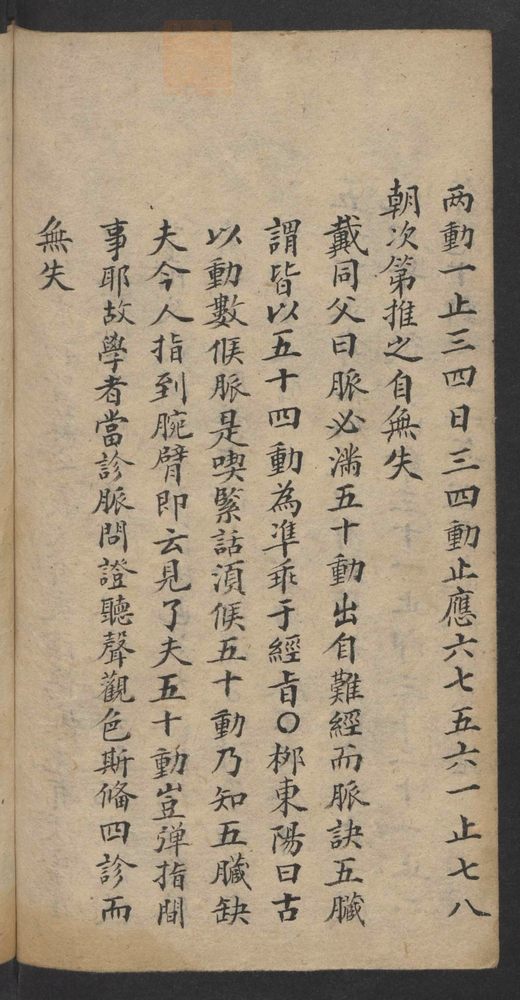 两動一止三四日三四動止應六七五六一止七八
朝次第推之自無失
戴同父曰脈必滿五十動出自難經而脈訣五臟
謂皆以五十四動為準乖于經旨〇栁東陽曰古
以動數候脈是喫緊話湏候五十動乃知五臟缺
夫今人指到腕臂即云見了夫五十動豈弹指間
事耶故學者當診脈問證聽聲觀色斯俻四診而
無失